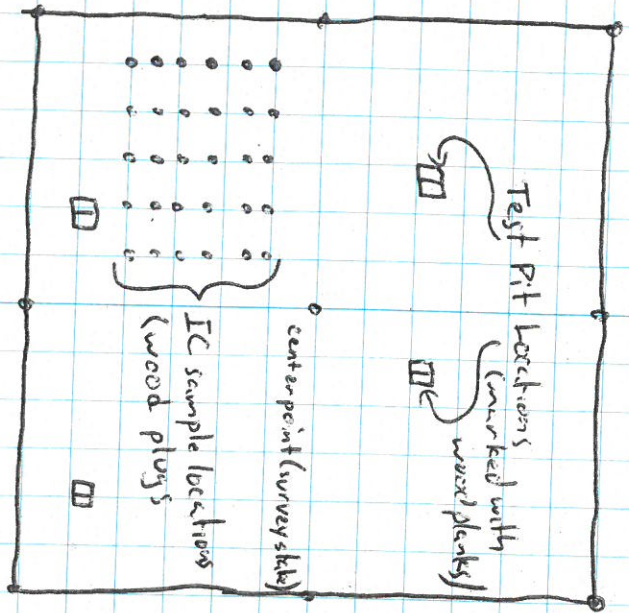 Test Pit Locations
(marked with
wood planks)
centerpoint (survey stake)
IC sample locations
(wood plugs